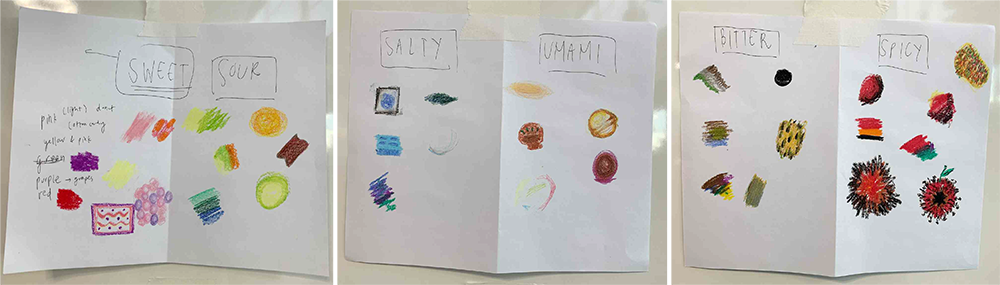 SWEET
SOUR
pink (light) donut
cotton candy
yellow & pink
green
purple → grapes
red
SALTY
UMAMI
BITTER
SPICY